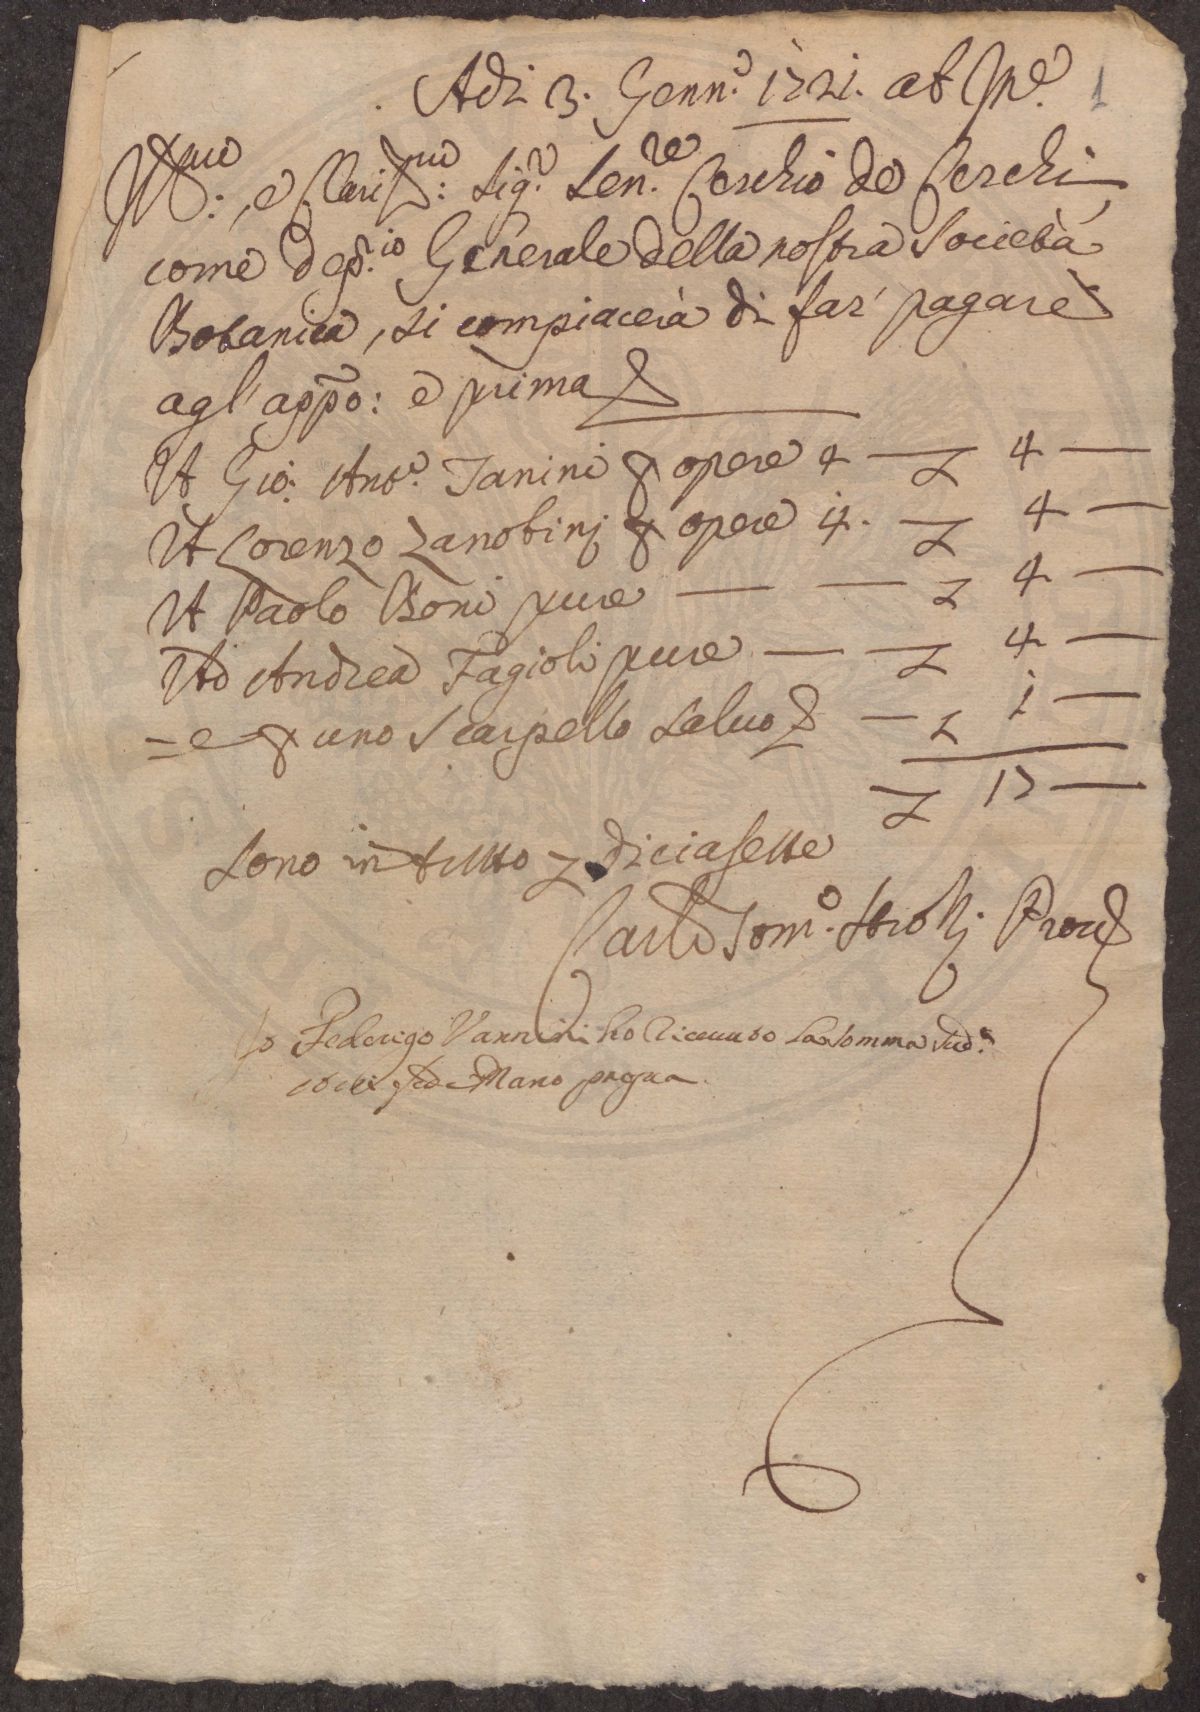 Adi 3. Genn.º 1721. ab Inc.e 1
Ill.mo: e Clariss.mo: Sig.r Sen.re Cerchio de Cerchi
come dep.rio Generale della nostra Società
Botanica, si compiacerà di far' pagare
agl' app.o: e prima
A Gio: Ant.o Janini p opere 4 — £ 4 —
A Lorenzo Zanobinj p opere 4. — £ 4 —
A Paolo Boni pure — — £ 4 —
Ad Andrea Fagioli pure — — £ 4 —
= e p uno Scarpello Salvo — £ 1 —
£ 17 —
Sono in tutto £ diciasette
Carlo Tom.o Strozzj Prov.
Io Federigo Vannini ho ricevuto la somma sud.a
mano propria